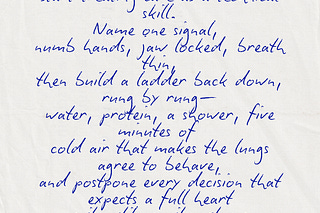 skill.
Name one signal,
numb hands, jaw locked, breath
thin,
then build a ladder back down,
rung by rung—
water, protein, a shower, five
minutes of
cold air that makes the lungs
agree to behave,
and postpone every decision that
expects a full heart